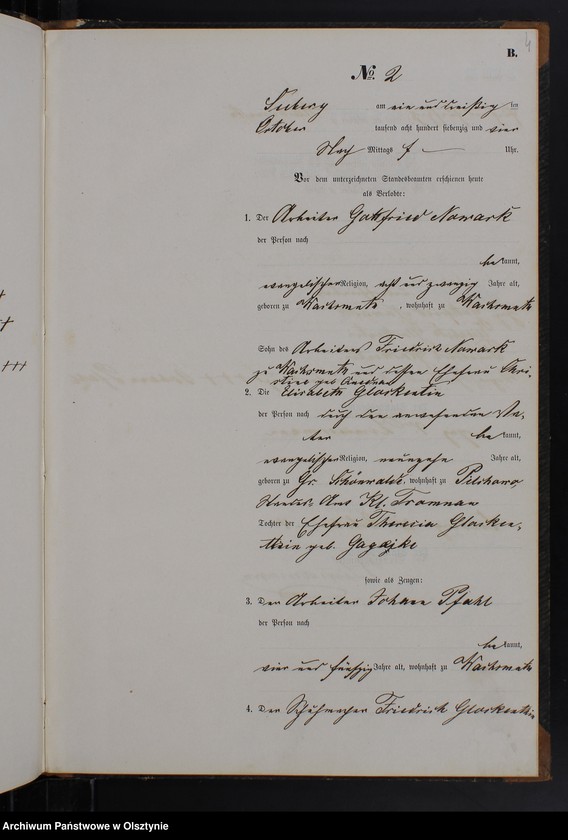 4
B.
No. 2
am ein und dreißig ten
October tausend acht hundert siebenzig und vier
Nach Mittags Uhr.
Vor dem unterzeichneten Standesbeamten erschienen heute
als Verlobte:
1. Der Arbeiter Gottfried Nowark
der Person nach
bekannt,
evangelischer Religion, acht und zwanzig Jahre alt,
geboren zu , wohnhaft zu
Sohn des Arbeiters Friedrich Nowark
zu und dessen Ehefrau Chri-
stine geb.
2. Die Elisabeth Glockentin
der Person nach durch den anwesenden Va-
ter bekannt,
evangelischer Religion, neunzehn Jahre alt,
geboren zu Gr. Schönwalde, wohnhaft zu
Standes Amt Kl. Tromnau
Tochter der Ehefrau Theresia Glocken-
thein geb.
sowie als Zeugen:
3. Der Arbeiter Johann Pfahl
der Person nach
bekannt,
vier und fünfzig Jahre alt, wohnhaft zu
4. Der Schuhmacher Friedrich
Archiwum Państwowe w Olsztynie